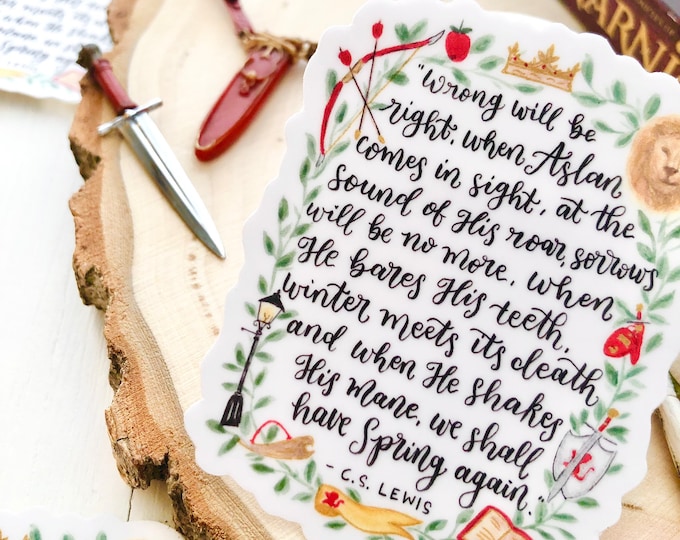 "Wrong will be
right, when Aslan
comes in sight, at the
sound of His roar, sorrows
will be no more, when
He bares His teeth,
winter meets its death
and when He shakes
His mane, we shall
have Spring again."
- C.S. LEWIS